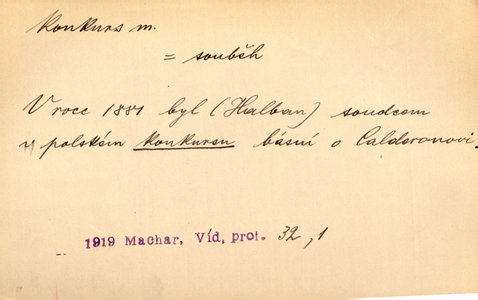 Konkurs m.
= souběh
V roce 1881 byl (Halban) soudcem
v polském konkursu básní o Calderonovi.
1919 Machar, Víd, prot. 32,1